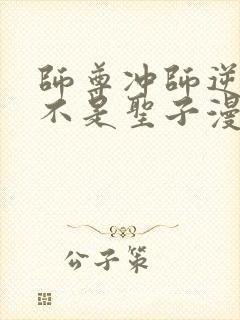 師尊冲師逆
不是聖子漫
公子策